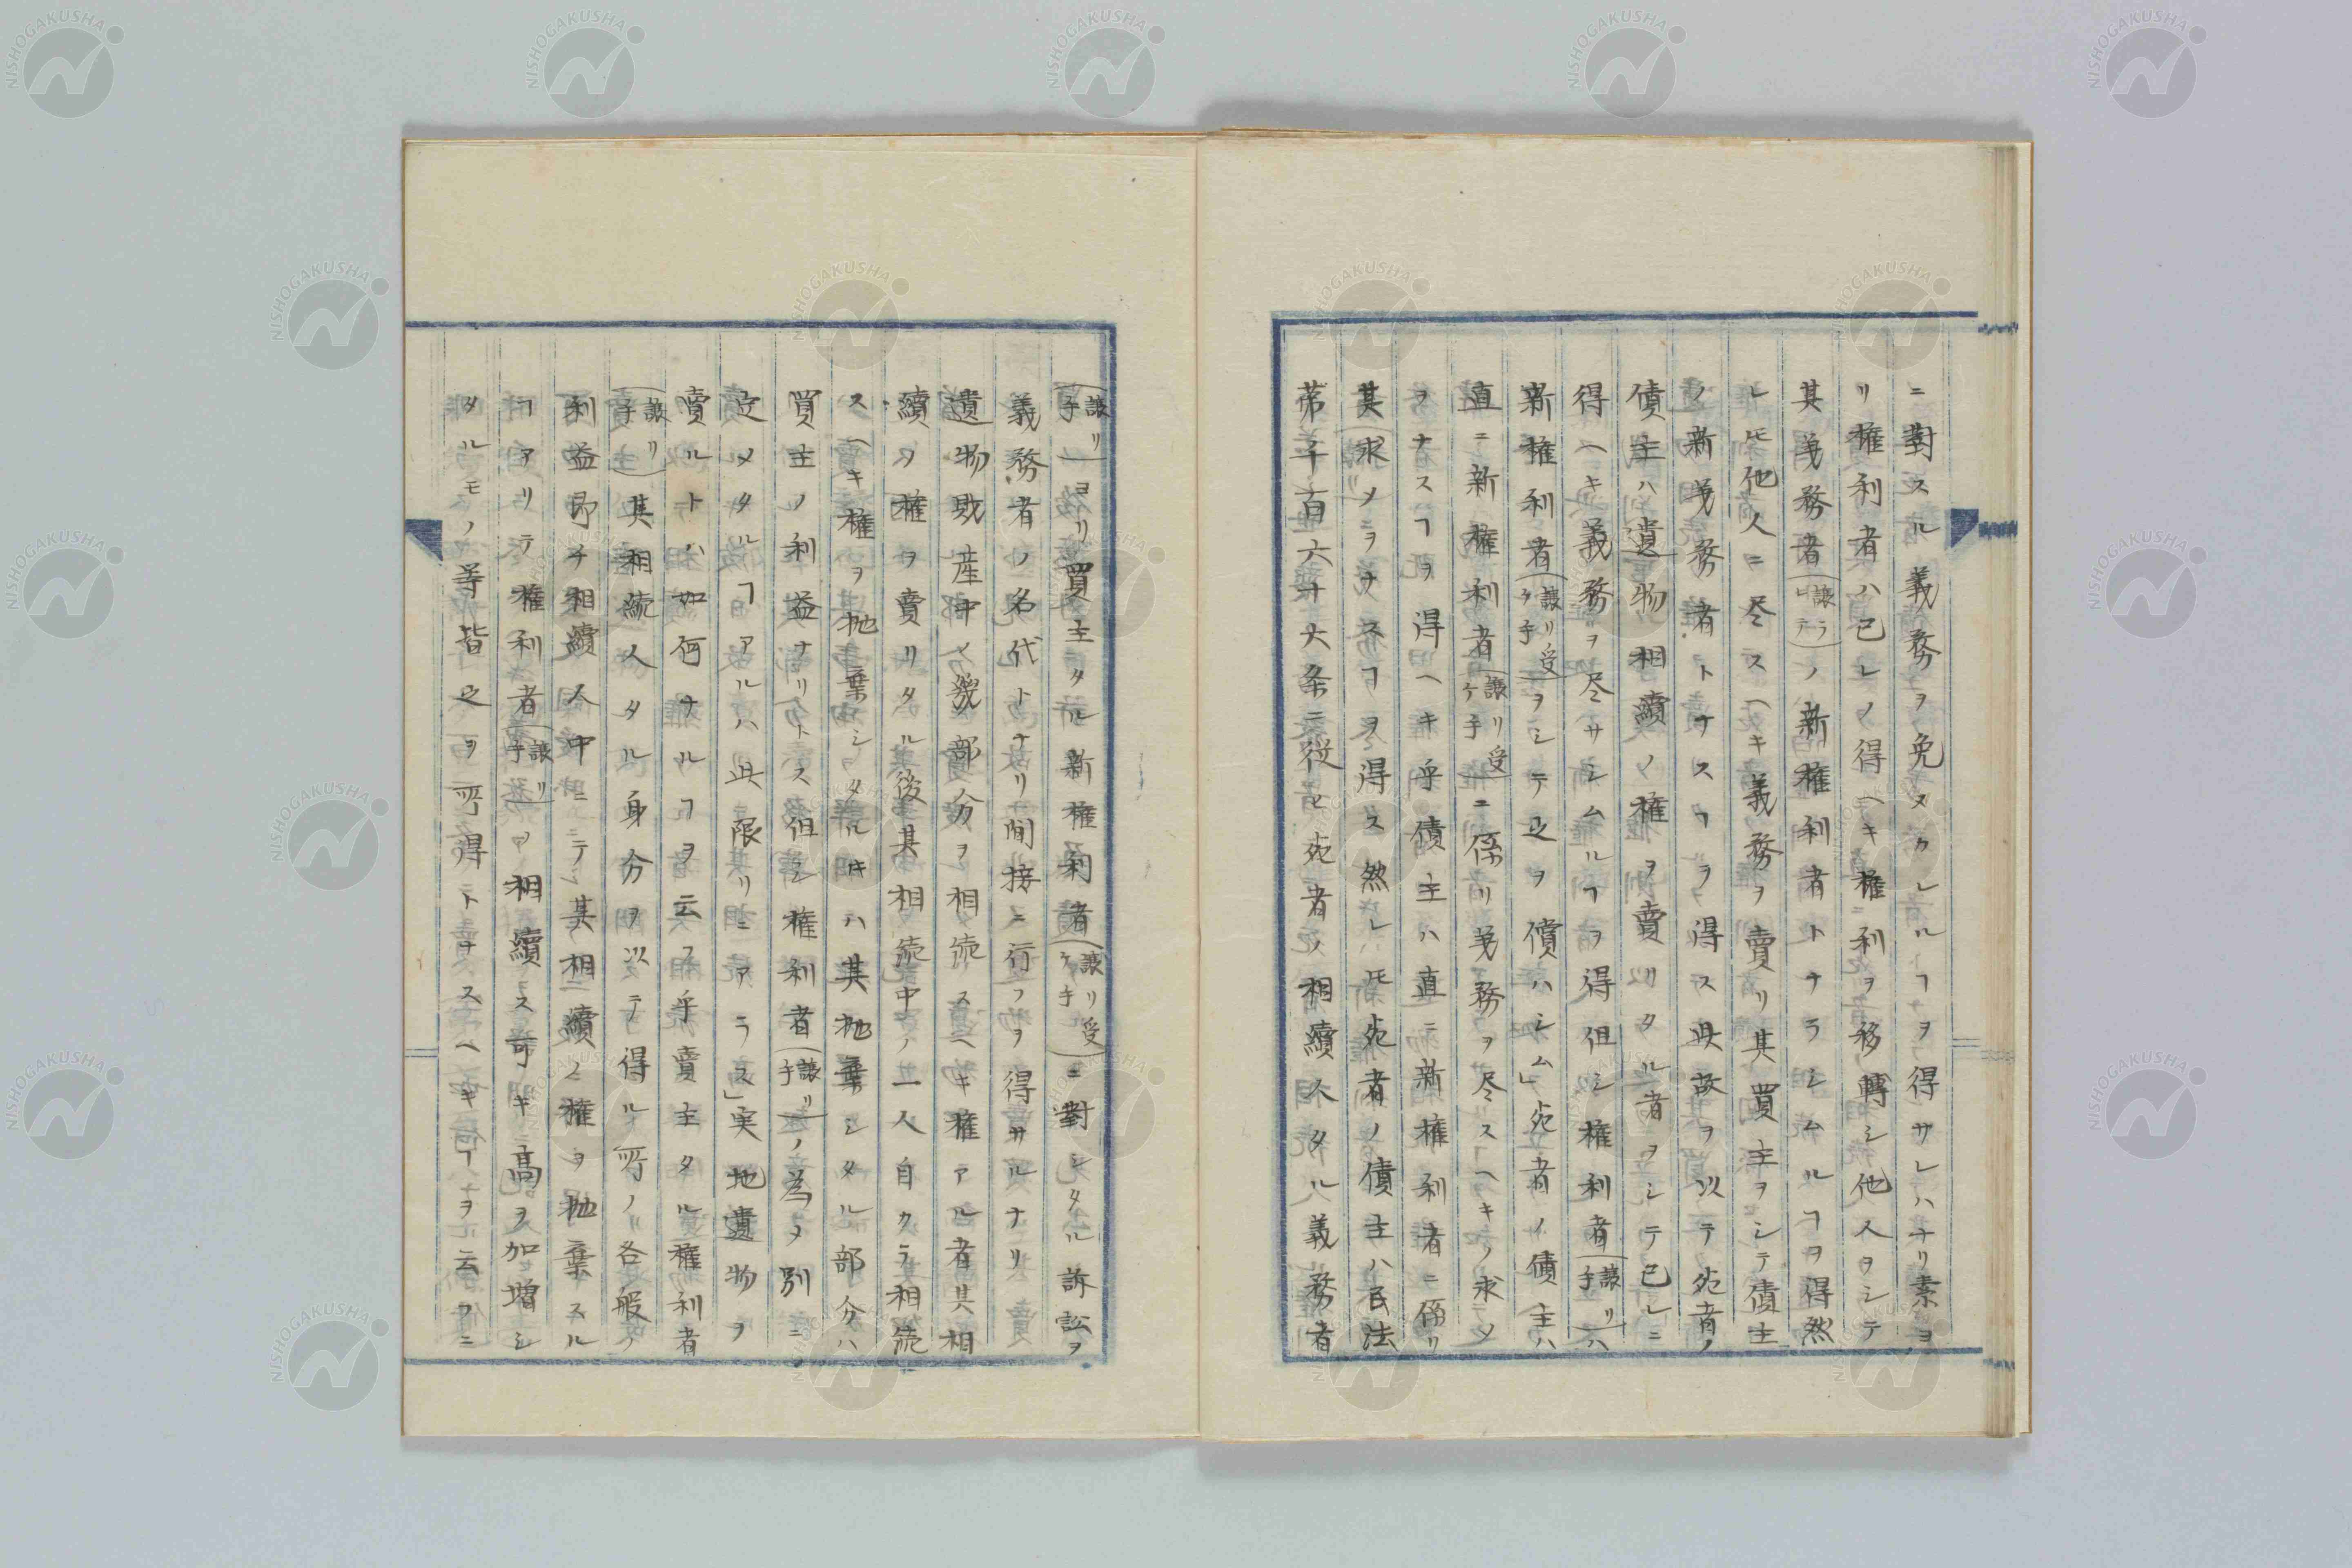 ニ對スル義務ヲ免ヌカレルヿヲ得サレハナリ素ヨ
リ権利者ハ己レノ得ヘキ権利ヲ移轉シ他人ヲシテ
其義務者(譲ラヒテ)ノ新権利者トナラシムルヿヲ得然
レ𪜈他人ニ尽スヘキ義務ヲ賣リ其買主ヲシテ債主
ノ新義務者トナスヿヲ得ス此故ヲ以テ死者ノ
債主ハ遺物相續ノ権ヲ賣リタル者ヲシテ己レニ
得ヘキ義務ヲ尽サシムルヿヲ得但シ権利者(譲リ手)ハ
新権利者(譲リ受ケ手)ヲシテ之ヲ償ハシム」死者ノ債主ハ
直ニ新権利者(譲リ受ケ手)ニ係リ義務ヲ尽スヘキノ求メ
ヲナスヿヲ得ヘキ乎債主ハ直ニ新権利者ニ係リ
其求メヲナスヿヲ得ス然レ𪜈死者ノ債主ハ民法
第千百六十六条ニ従ヒ死者ノ相續人タル義務者
(譲リ手)ヨリ買主タル新権利者(譲リ受ケ手)ニ對シタル訴訟ヲ
義務者ノ名代トナリ間接ニ行フヲ得サルナリ
遺物財産中ノ幾部分ヲ相続スヘキ権アル者其相
續ノ権ヲ賣リタル後其相続中ノ一人自クラ相続
スヘキ権ヲ抛棄シタル𪜈ハ其抛棄シタル部分ハ
買主ノ利益ナリトス但シ権利者(譲リ手)ノ為メ別ニ
定メタルヿアルハ此限リニアラス」実地遺物ヲ
賣ルトハ如何ナルヿヲ云フ乎賣主タル権利者
(譲リ手)其相続人タル身分ヲ以テ得ル所ノ各般ノ
利益即チ相續人中ニテ其相續ノ権ヲ抛棄スル
ヿアリテ権利者(譲リ手)ノ相續ス可キ高ヲ加増シ
タルモノ等皆之ヲ所得トナスヘキヿヲ云フニ